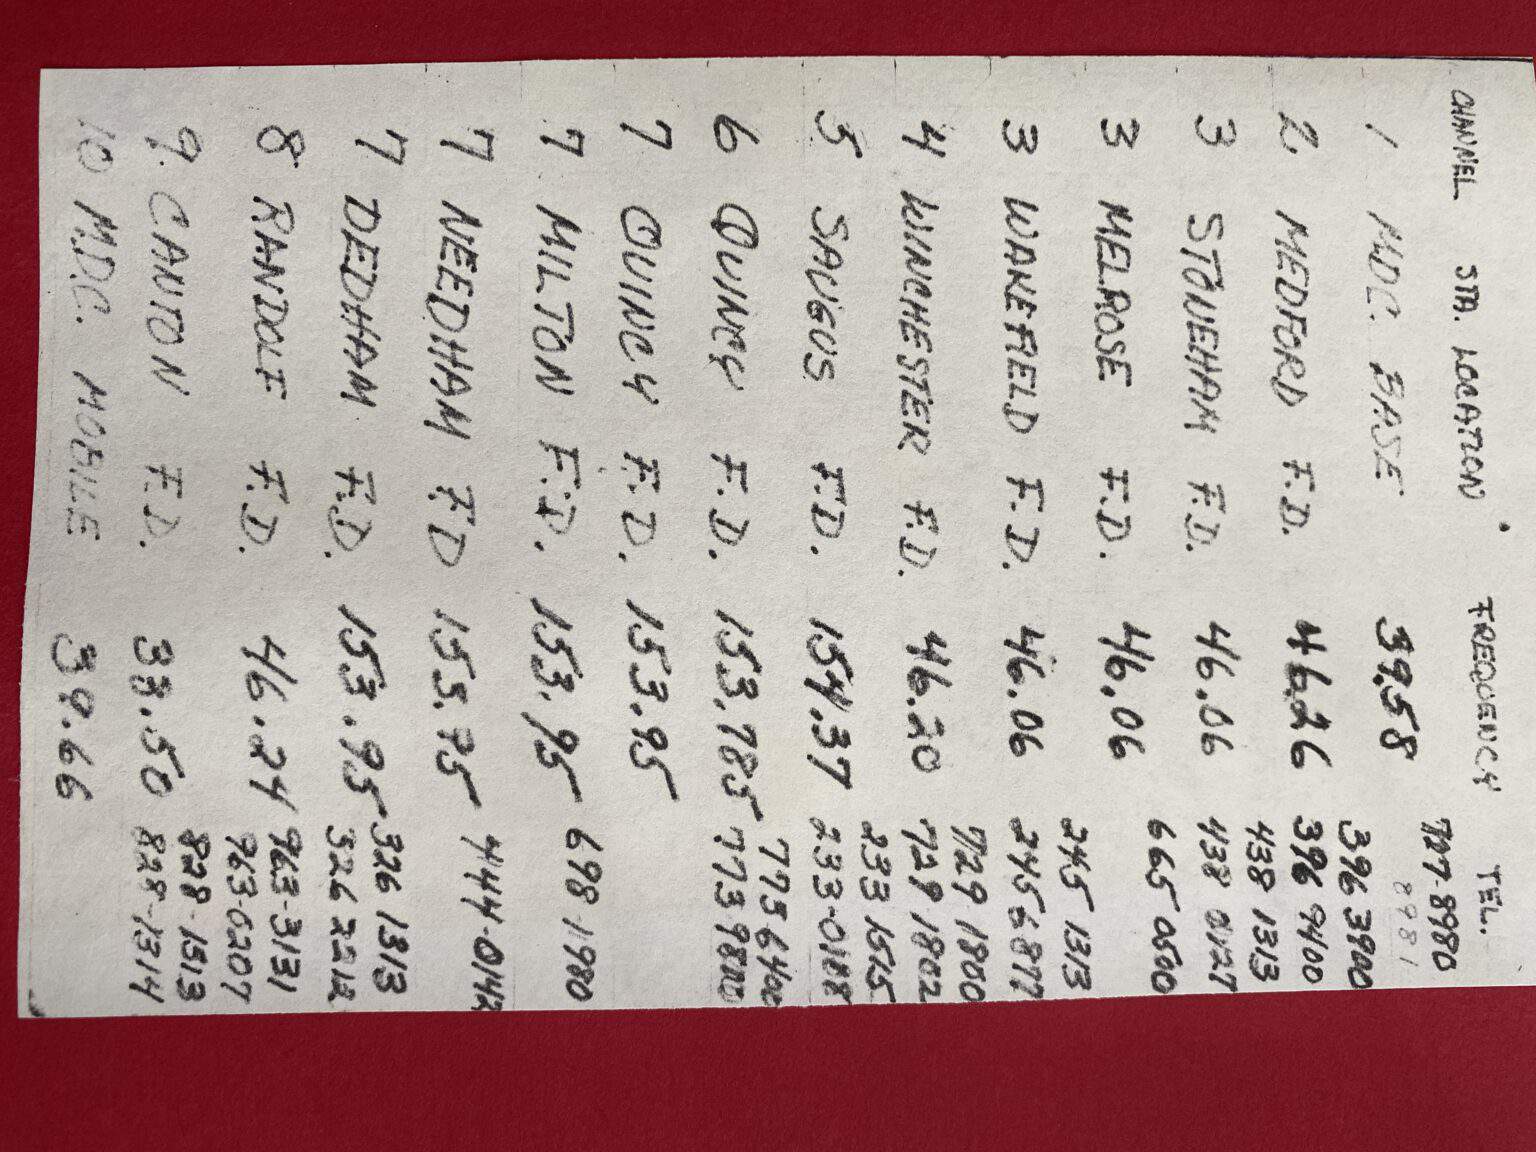 CHANNEL STA. LOCATION FREQUENCY TEL.
1 MDC. BASE 39.58 727-8980
8981
2 MEDFORD F.D. 46.26 396 3900
396 9400
3 STONEHAM F.D. 46.06 438 1313
438 0127
3 MELROSE F.D. 46.06 665 0500
3 WAKEFIELD F.D. 46.06 245 1313
245 6877
4 WINCHESTER F.D. 46.20 729 1800
729 1802
5 SAUGUS F.D. 154.37 233 1515
233-0188
6 QUINCY F.D. 153.785 773 6400
773 9800
7 QUINCY F.D. 153.95
7 MILTON F.D. 153.95 698-1980
7 NEEDHAM F.D 153.95 444-0142
7 DEDHAM F.D. 153.95 326 1313
326 2212
8 RANDOLF F.D. 46.24 963-3131
963-0207
9. CANTON F.D. 33.50 828-1513
828-1314
10 M.D.C. MOBILE 39.66